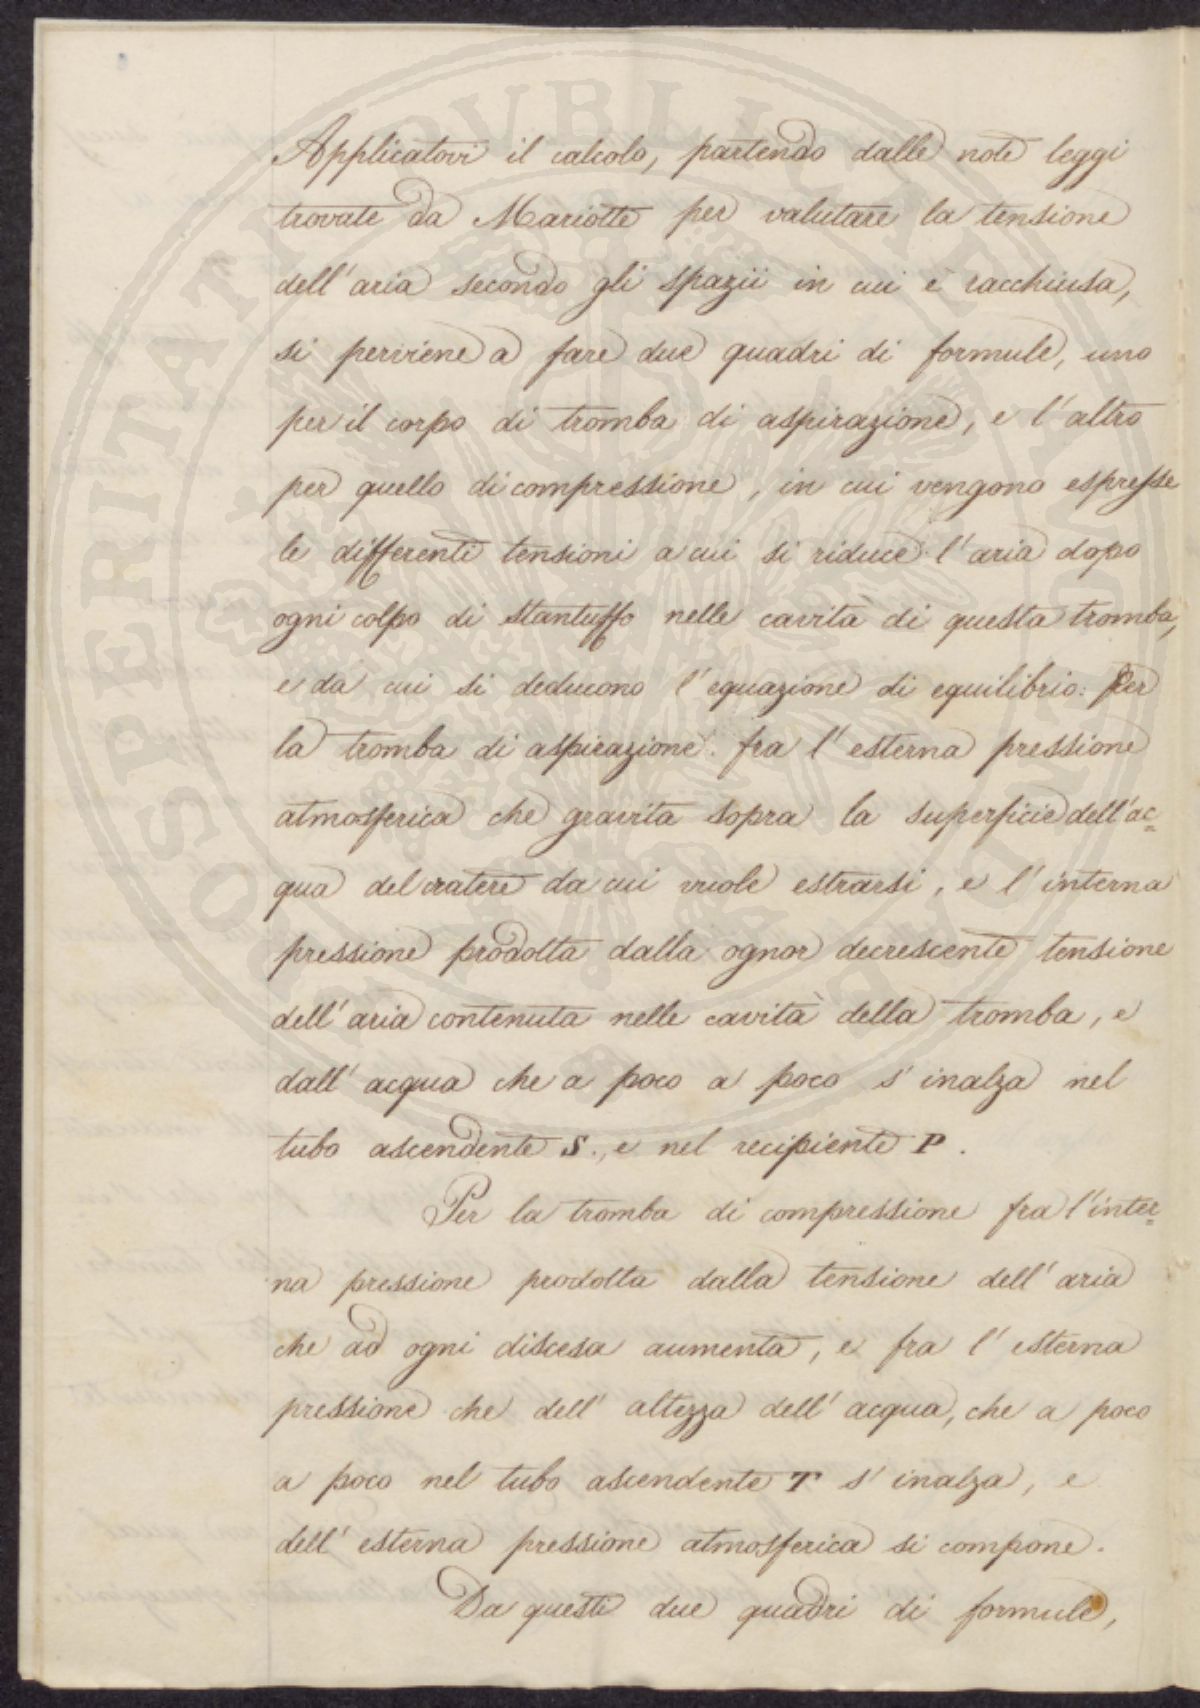 Applicatovi il calcolo, partendo dalle note leggi
trovate da Mariotte per valutare la tensione
dell'aria secondo gli spazii in cui è racchiusa,
si perviene a fare due quadri di formule, uno
per il corpo di tromba di aspirazione, e l'altro
per quello di compressione, in cui vengono espresse
le differenti tensioni a cui si riduce l'aria dopo
ogni colpo di stantuffo nelle cavità di questa tromba,
e da cui si deducono l'equazione di equilibrio: Per
la tromba di aspirazione. fra l'esterna pressione
atmosferica che gravita sopra la superficie dell'ac=
qua del cratere da cui vuole estrarsi, e l'interna
pressione prodotta dalla ognor decrescente tensione
dell'aria contenuta nelle cavità della tromba, e
dall'acqua che a poco a poco s'inalza nel
tubo ascendente S., e nel recipiente P.
Per la tromba di compressione fra l'inter=
na pressione prodotta dalla tensione dell'aria
che ad ogni discesa aumenta, e fra l'esterna
pressione che dell'altezza dell'acqua, che a poco
a poco nel tubo ascendente T s'inalza, e
dell'esterna pressione atmosferica si compone.
Da questi due quadri di formule,
PROSPERITATI PUBLICAE